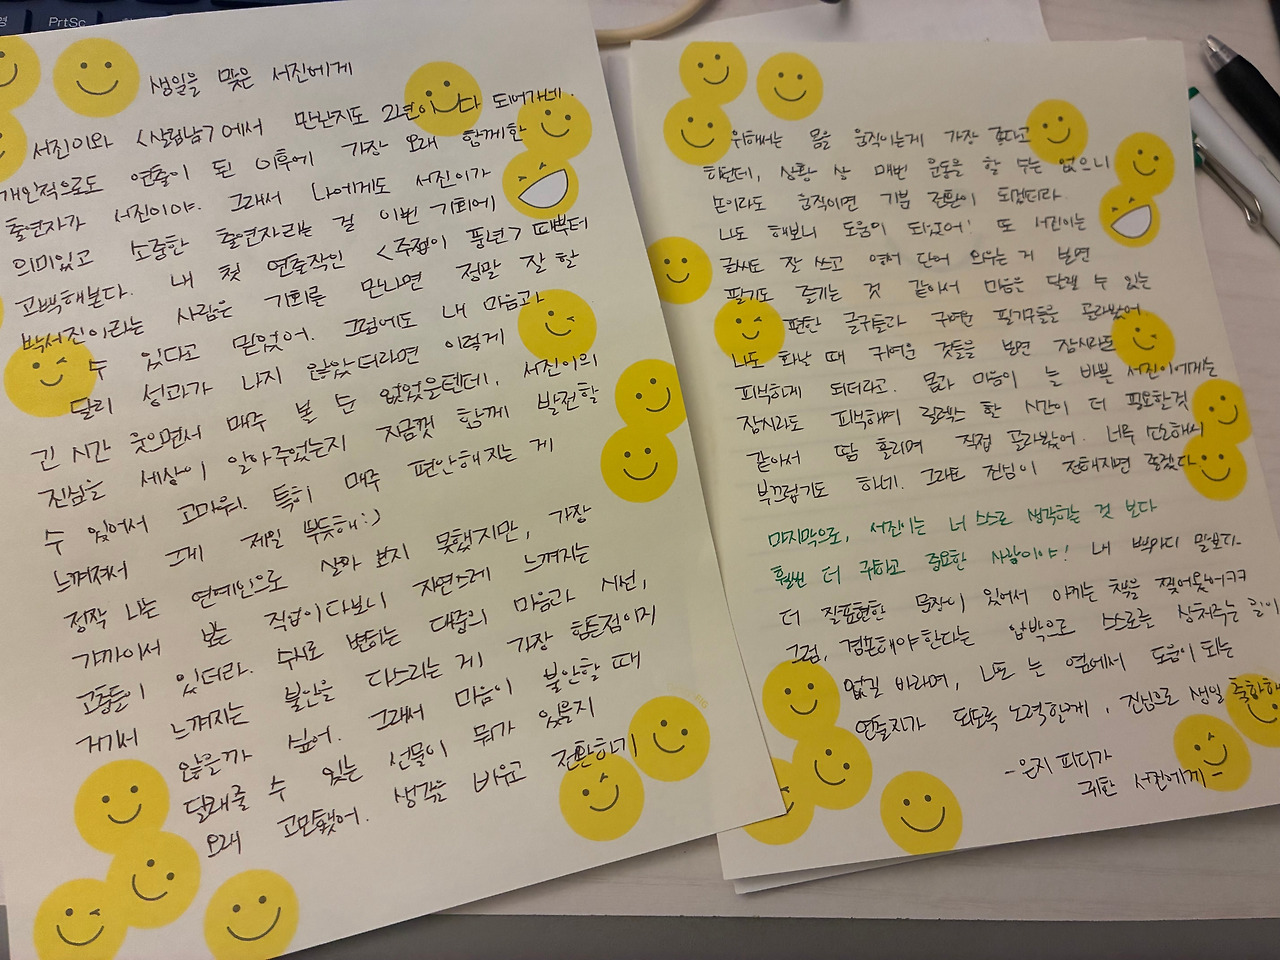 PrtSc
생일을 맞은 서진에게
서진이와 <살림남>에서 만난지도 2년이 다 되어가네.
개인적으로도 연출이 된 이후에 가장 오래 함께한
출연자가 서진이야. 그래서 나에게도 서진이가
의미있고 소중한 출연자라는 걸 이번 기회에
고백해본다. 내 첫 연출작인 <주접이 풍년> 때부터
박서진이라는 사람은 기회를 만나면 정말 잘 할
수 있다고 믿었어. 그럼에도 내 마음과
달리 성과가 나지 않았더라면 이렇게
긴 시간 웃으면서 매주 볼 순 없었을텐데, 서진이의
진심을 세상이 알아주었는지 지금껏 함께 발전할
수 있어서 고마워. 특히 매주 편안해지는 게
느껴져서 그게 제일 뿌듯해:)
정작 나는 연예인으로 살아 보지 못했지만, 가장
가까이서 보는 직업이다보니 자연스레 느껴지는
고충들이 있더라. 수시로 변하는 대중의 마음과 시선,
거기서 느껴지는 불안을 다스리는 게 가장 힘든점이지
않을까 싶어. 그래서 마음이 불안할 때
달래줄 수 있는 선물이 뭐가 있을지
오래 고민했어. 생각을 비우고 전환하기
위해서는 몸을 움직이는게 가장 좋다고
하던데, 상황 상 매번 운동을 할 수는 없으니
손이라도 움직이면 기분 전환이 되겠더라.
나도 해보니 도움이 되었어! 또 서진이는
글씨도 잘 쓰고 영어 단어 외우는 거 보면
필기도 즐기는 것 같아서 마음은 달랠 수 있는
편한 글구들과 귀여운 필기구들을 골라봤어
나도 화날 때 귀여운 것들을 보면 잠시라도
피식하게 되더라고. 몸과 마음이 늘 바쁜 서진이에게는
잠시라도 피식하며 릴렉스 한 시간이 더 필요할것
같아서 땀 흘리며 직접 골라봤어. 너무 소소해서
부끄럽기도 하네. 그래도 진심이 전해지면 좋겠다.
마지막으로, 서진이는 너 스스로 생각하는 것 보다
훨씬 더 귀하고 중요한 사람이야! 내 백마디 말보다
더 잘표현한 문장이 있어서 아끼는 책을 찢어왔어ㅋㅋ
그럼, 결론해야한다는 압박으로 스스로를 상처주는 일이
없길 바라며, 나도 늘 옆에서 도움이 되는
연출자가 되도록 노력할게, 진심으로 생일 축하해
-은지 피디가
귀한 서진에게-